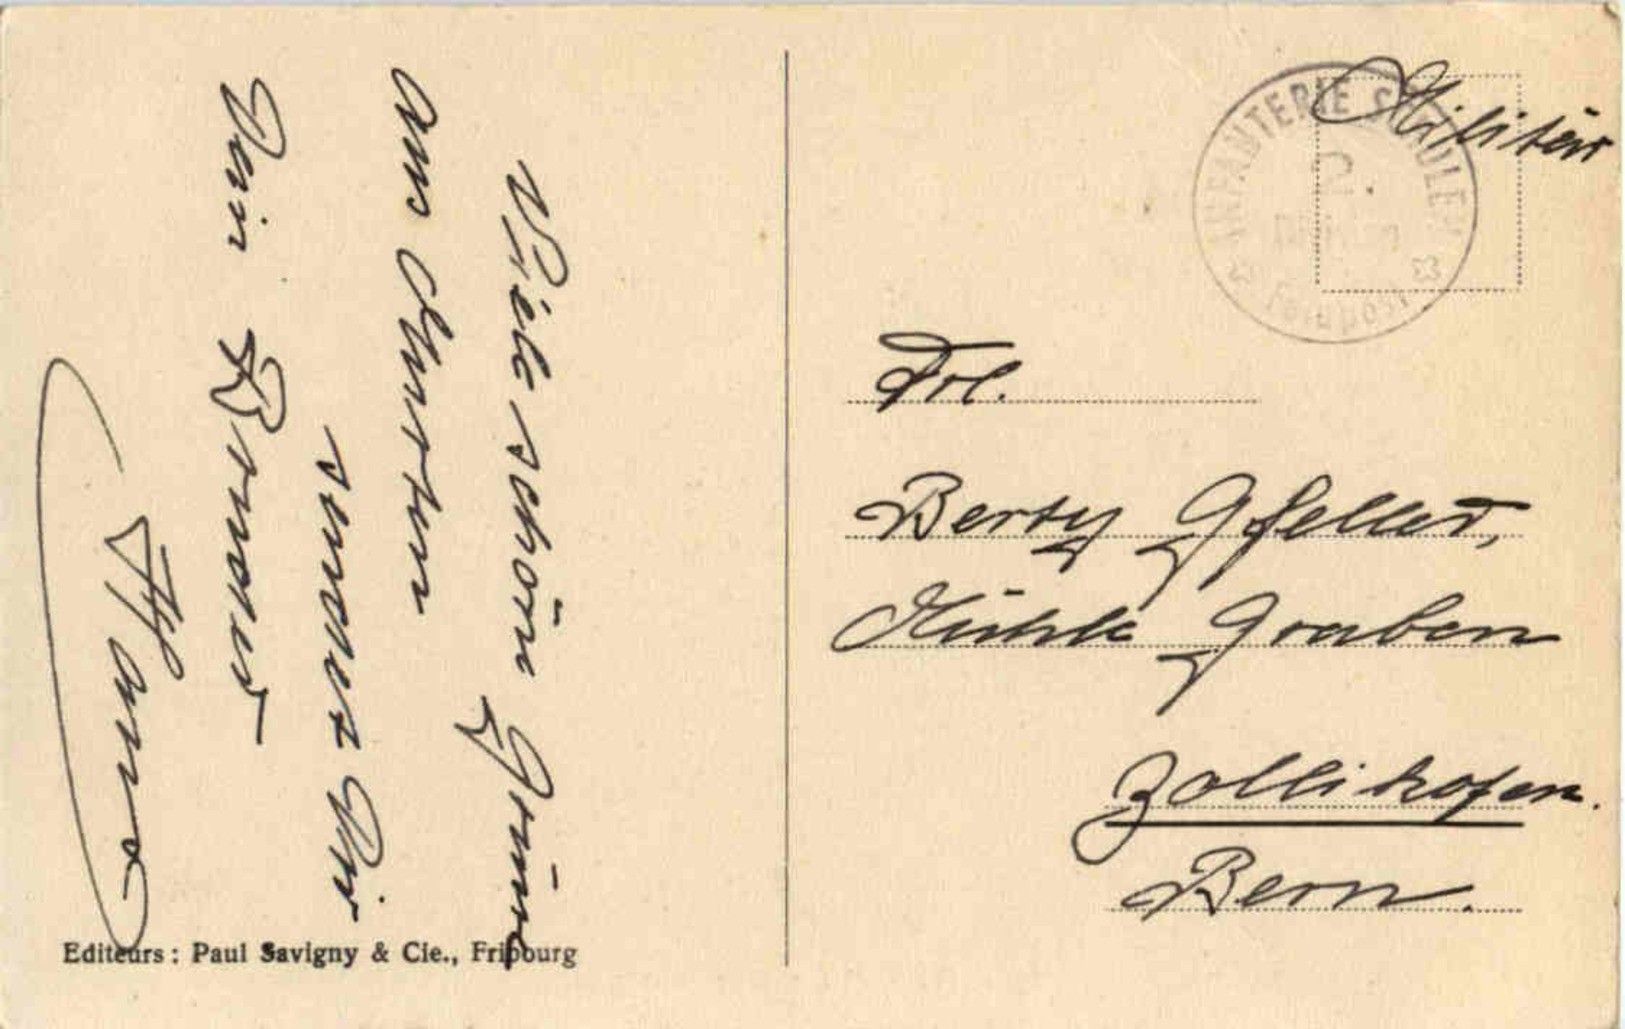 Viele schöne Grüsse
aus
sendet Dir
Dein
Hans
Editeurs : Paul Savigny & Cie., Fribourg
Militär
INFANTERIE SCHULEN
2.
Feldpost
Frl.
Berty Gfeller,
Mühle Graben
Zollikofen.
Bern.